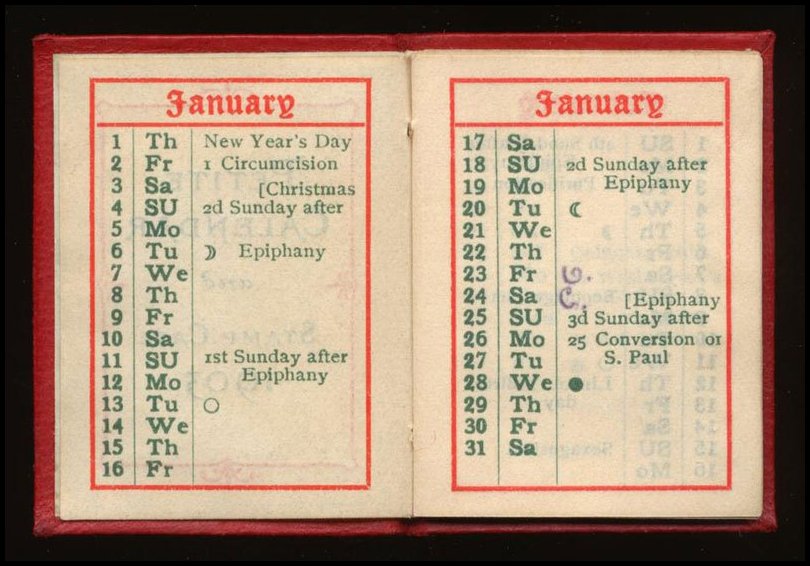 January
1 Th New Year's Day
2 Fr 1 Circumcision
3 Sa [Christmas
4 SU 2d Sunday after
5 Mo
6 Tu ☽ Epiphany
7 We
8 Th
9 Fr
10 Sa
11 SU 1st Sunday after
12 Mo Epiphany
13 Tu ○
14 We
15 Th
16 Fr
January
17 Sa
18 SU 2d Sunday after
19 Mo Epiphany
20 Tu ☾
21 We
22 Th
23 Fr
24 Sa [Epiphany
25 SU 3d Sunday after
26 Mo 25 Conversion of
27 Tu S. Paul
28 We ●
29 Th
30 Fr
31 Sa